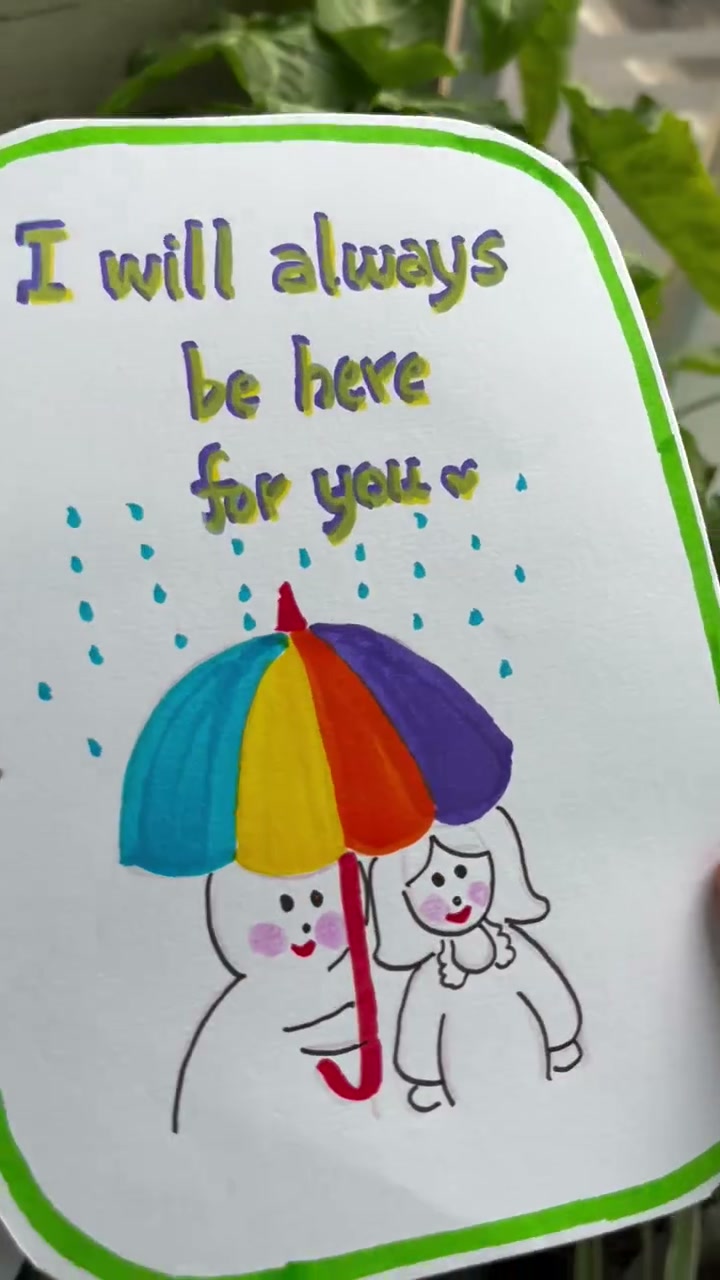 I will always
be here
for you ♥